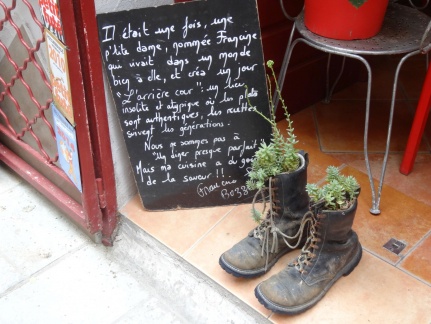 Il était une fois, une
p'tite dame, nommée Francine
qui vivait dans un monde
bien à elle, et créa un jour
"L'arrière cour": un lieu
insolite et atypique où les
sont authentiques, les recettes
suivent les générations.
Nous ne sommes pas à
"un diner presque parfait"
Mais ma cuisine a du goût
de la saveur!!